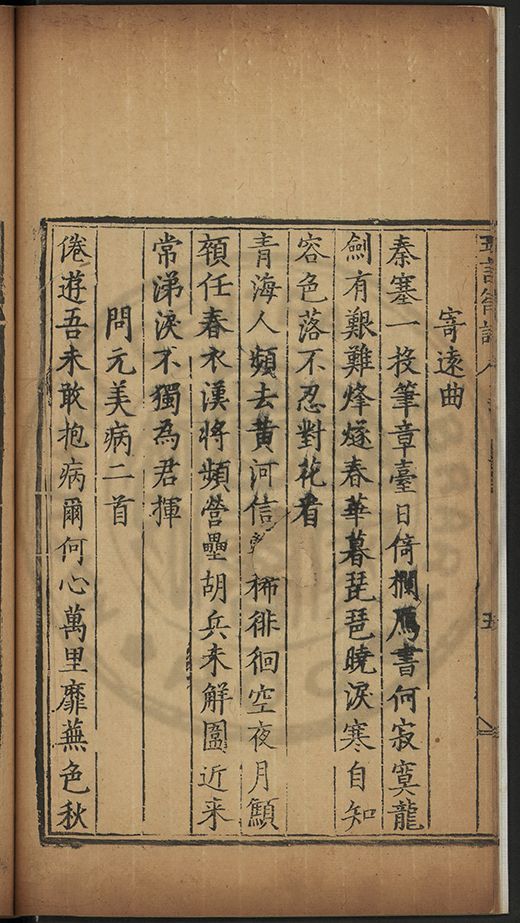 寄遠曲
秦塞一投筆章臺日倚欄鴈書何寂寞龍
劍有艱難烽燧春華暮琵琶曉淚寒自知
容色落不忍對花看
青海人頻去黄河信稀徘徊空夜月顦
顇任春衣漢將頻營壘胡兵未解圍近来
常涕淚不獨為君揮
問元美病二首
倦遊吾未敢抱病爾何心萬里靡蕪色秋
五